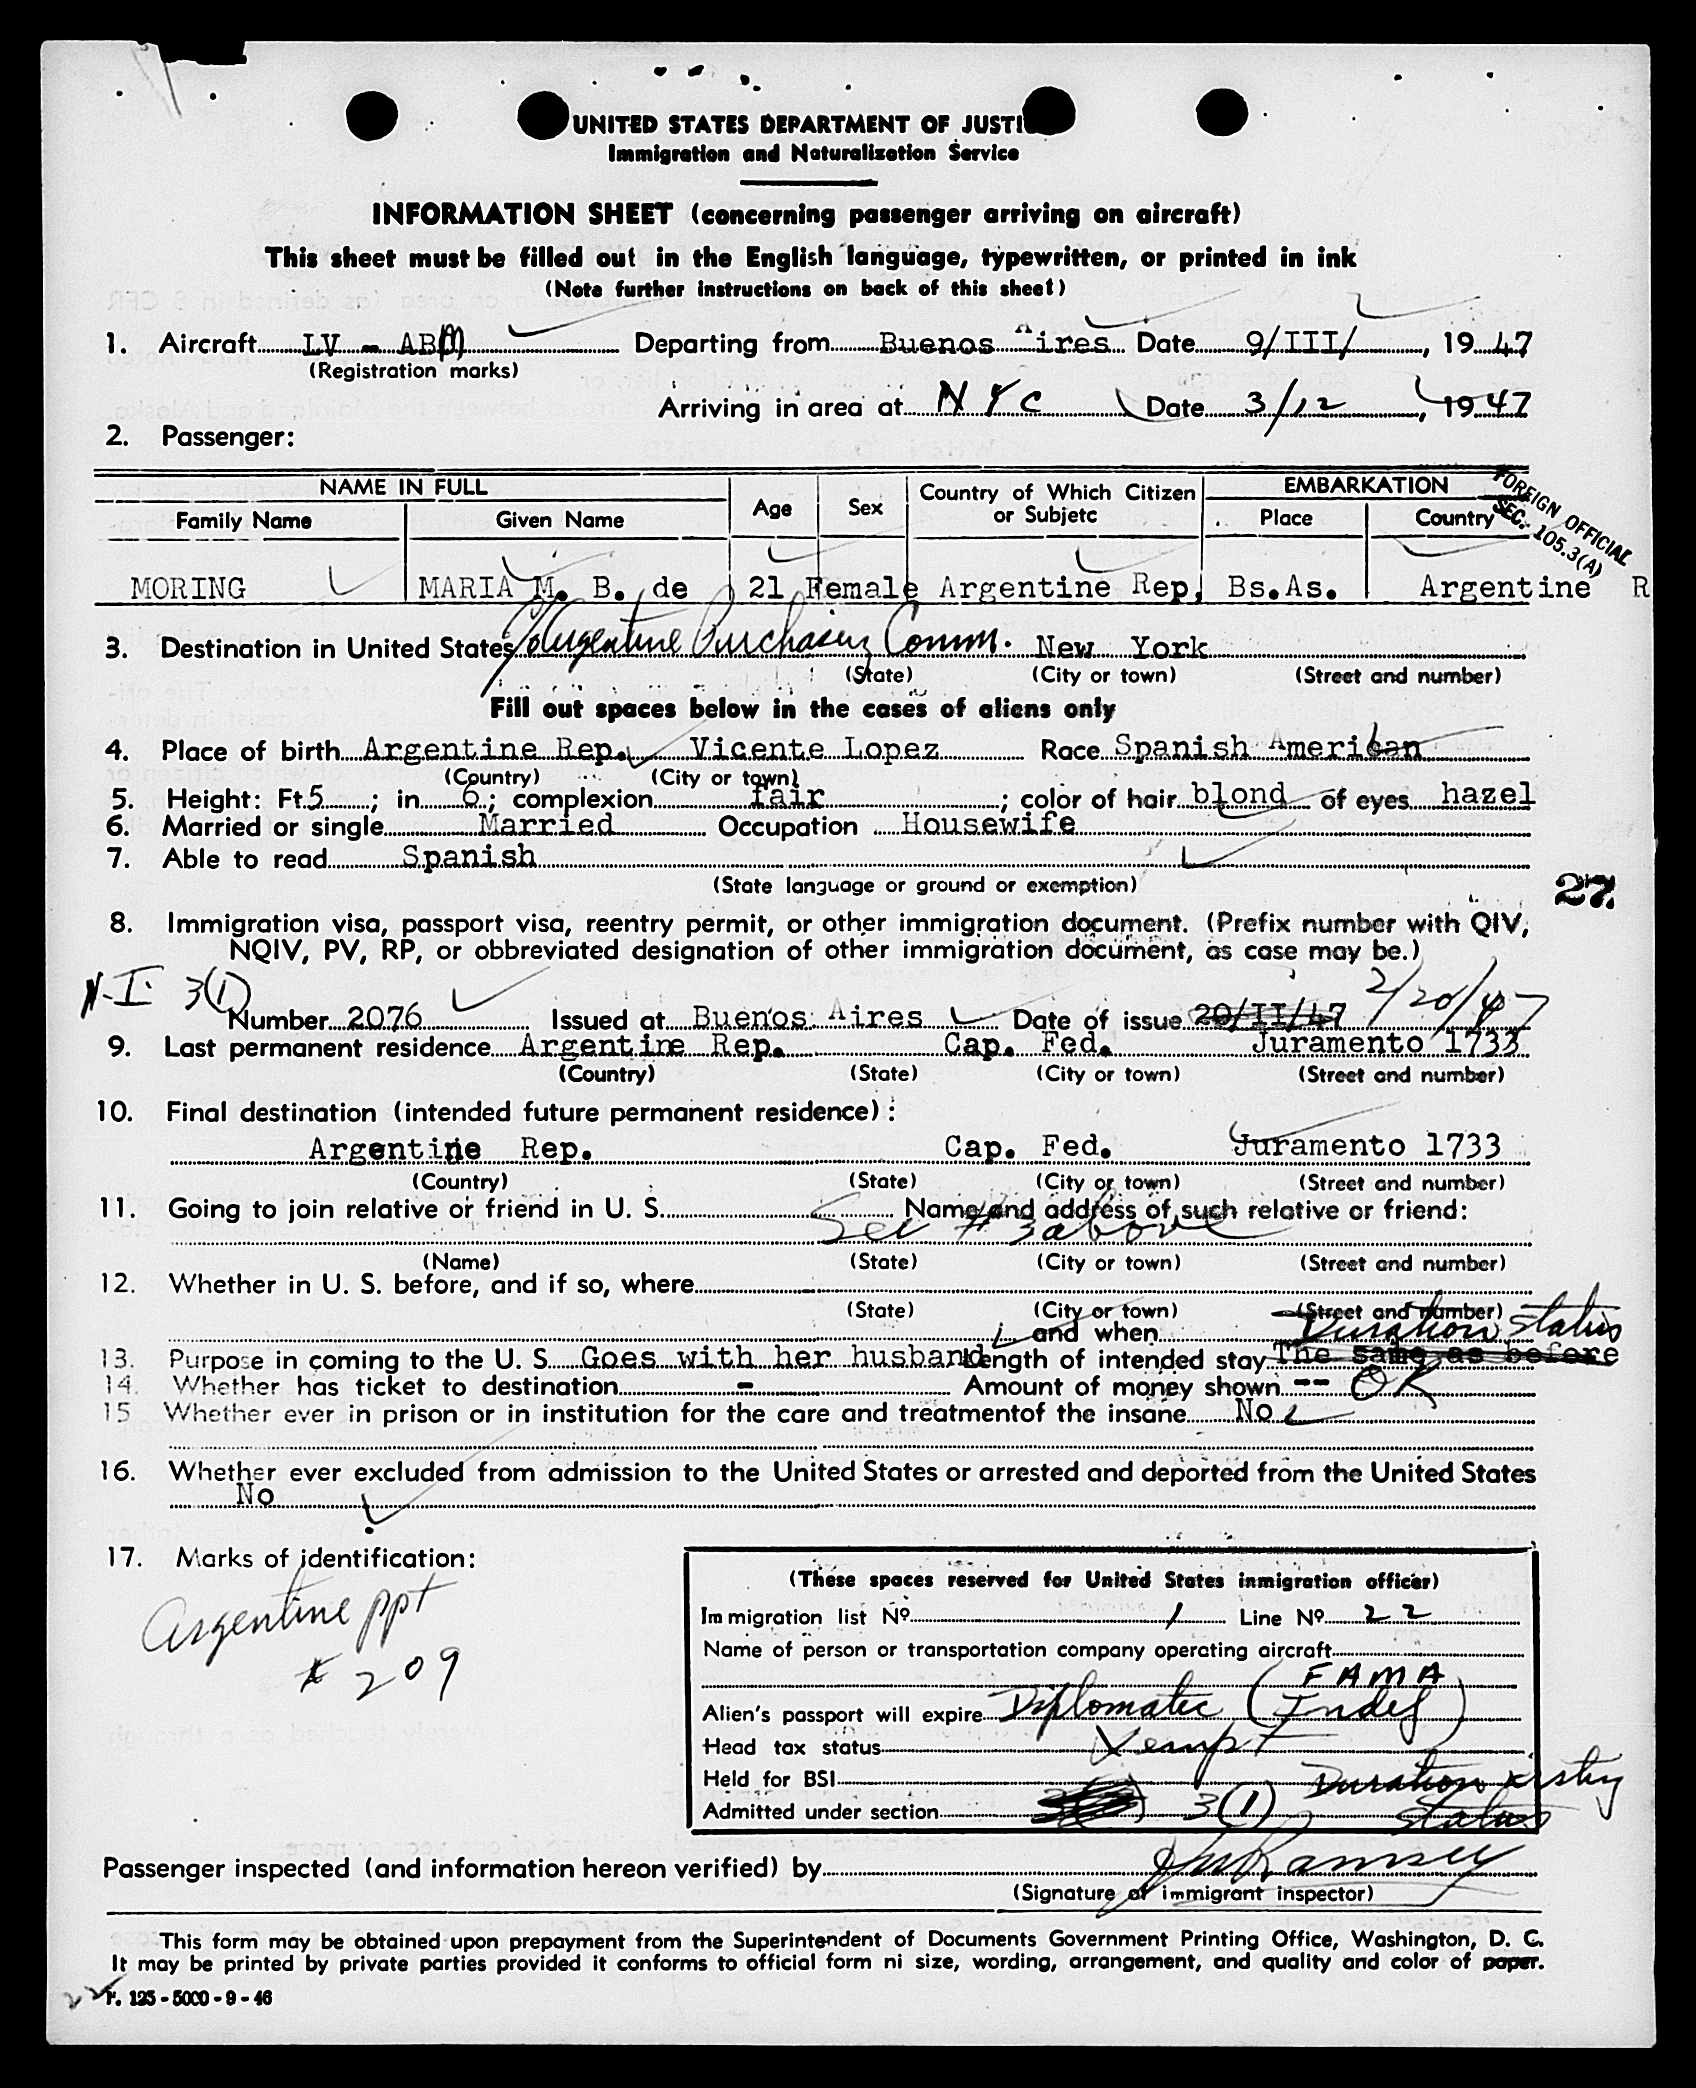 UNITED STATES DEPARTMENT OF JUSTI
Immigration and Naturalization Service
INFORMATION SHEET (concerning passenger arriving on aircraft)
This sheet must be filled out in the English language, typewritten, or printed in ink
(Note further instructions on back of this sheet)
1. Aircraft LV - ABM Departing from Buenos Aires Date 9/III/, 1947
(Registration marks)
Arriving in area at NYC Date 3/12, 1947
2. Passenger:
NAME IN FULL Age Sex Country of Which Citizen or Subjetc EMBARKATION
Family Name Given Name Place Country
FOREIGN OFFICIAL
SEC. 105.3(A)
MORING MARIA M. B. de 21 Female Argentine Rep. Bs.As. Argentine R
3. Destination in United States c/o Argentine Purchasing Comm. New York
(State) (City or town) (Street and number)
Fill out spaces below in the cases of aliens only
4. Place of birth Argentine Rep. Vicente Lopez Race Spanish American
(Country) (City or town)
5. Height: Ft. 5; in. 6; complexion fair; color of hair blond of eyes hazel
6. Married or single Married Occupation Housewife
7. Able to read Spanish
(State language or ground or exemption)
27.
8. Immigration visa, passport visa, reentry permit, or other immigration document. (Prefix number with QIV,
NQIV, PV, RP, or obbreviated designation of other immigration document, as case may be.)
N-I 3(1) Number 2076 Issued at Buenos Aires Date of issue 20/II/47 2/20/47
9. Last permanent residence Argentine Rep. Cap. Fed. Juramento 1733
(Country) (State) (City or town) (Street and number)
10. Final destination (intended future permanent residence):
Argentine Rep. Cap. Fed. Juramento 1733
(Country) (State) (City or town) (Street and number)
11. Going to join relative or friend in U. S. Name and address of such relative or friend:
See # 3 above
(Name) (State) (City or town) (Street and number)
12. Whether in U. S. before, and if so, where
(State) (City or town) (Street and number)
and when Duration Status
13. Purpose in coming to the U. S. Goes with her husband Length of intended stay The same as before
14. Whether has ticket to destination - Amount of money shown -- OK
15 Whether ever in prison or in institution for the care and treatmentof the insane No
16. Whether ever excluded from admission to the United States or arrested and deported from the United States
No
17. Marks of identification:
Argentine ppt
# 209
(These spaces reserved for United States inmigration officer)
Immigration list Nº 1 Line Nº 22
Name of person or transportation company operating aircraft
FAMA
Alien's passport will expire Diplomatic (Indef)
Head tax status Xempt
Held for BSI Duration
Admitted under section 3(1) Status
Passenger inspected (and information hereon verified) by Ramsey
(Signature of immigrant inspector)
This form may be obtained upon prepayment from the Superintendent of Documents Government Printing Office, Washington, D. C.
It may be printed by private parties provided it conforms to official form ni size, wording, arrangement, and quality and color of paper.
F. 125 - 5000 - 9 - 46